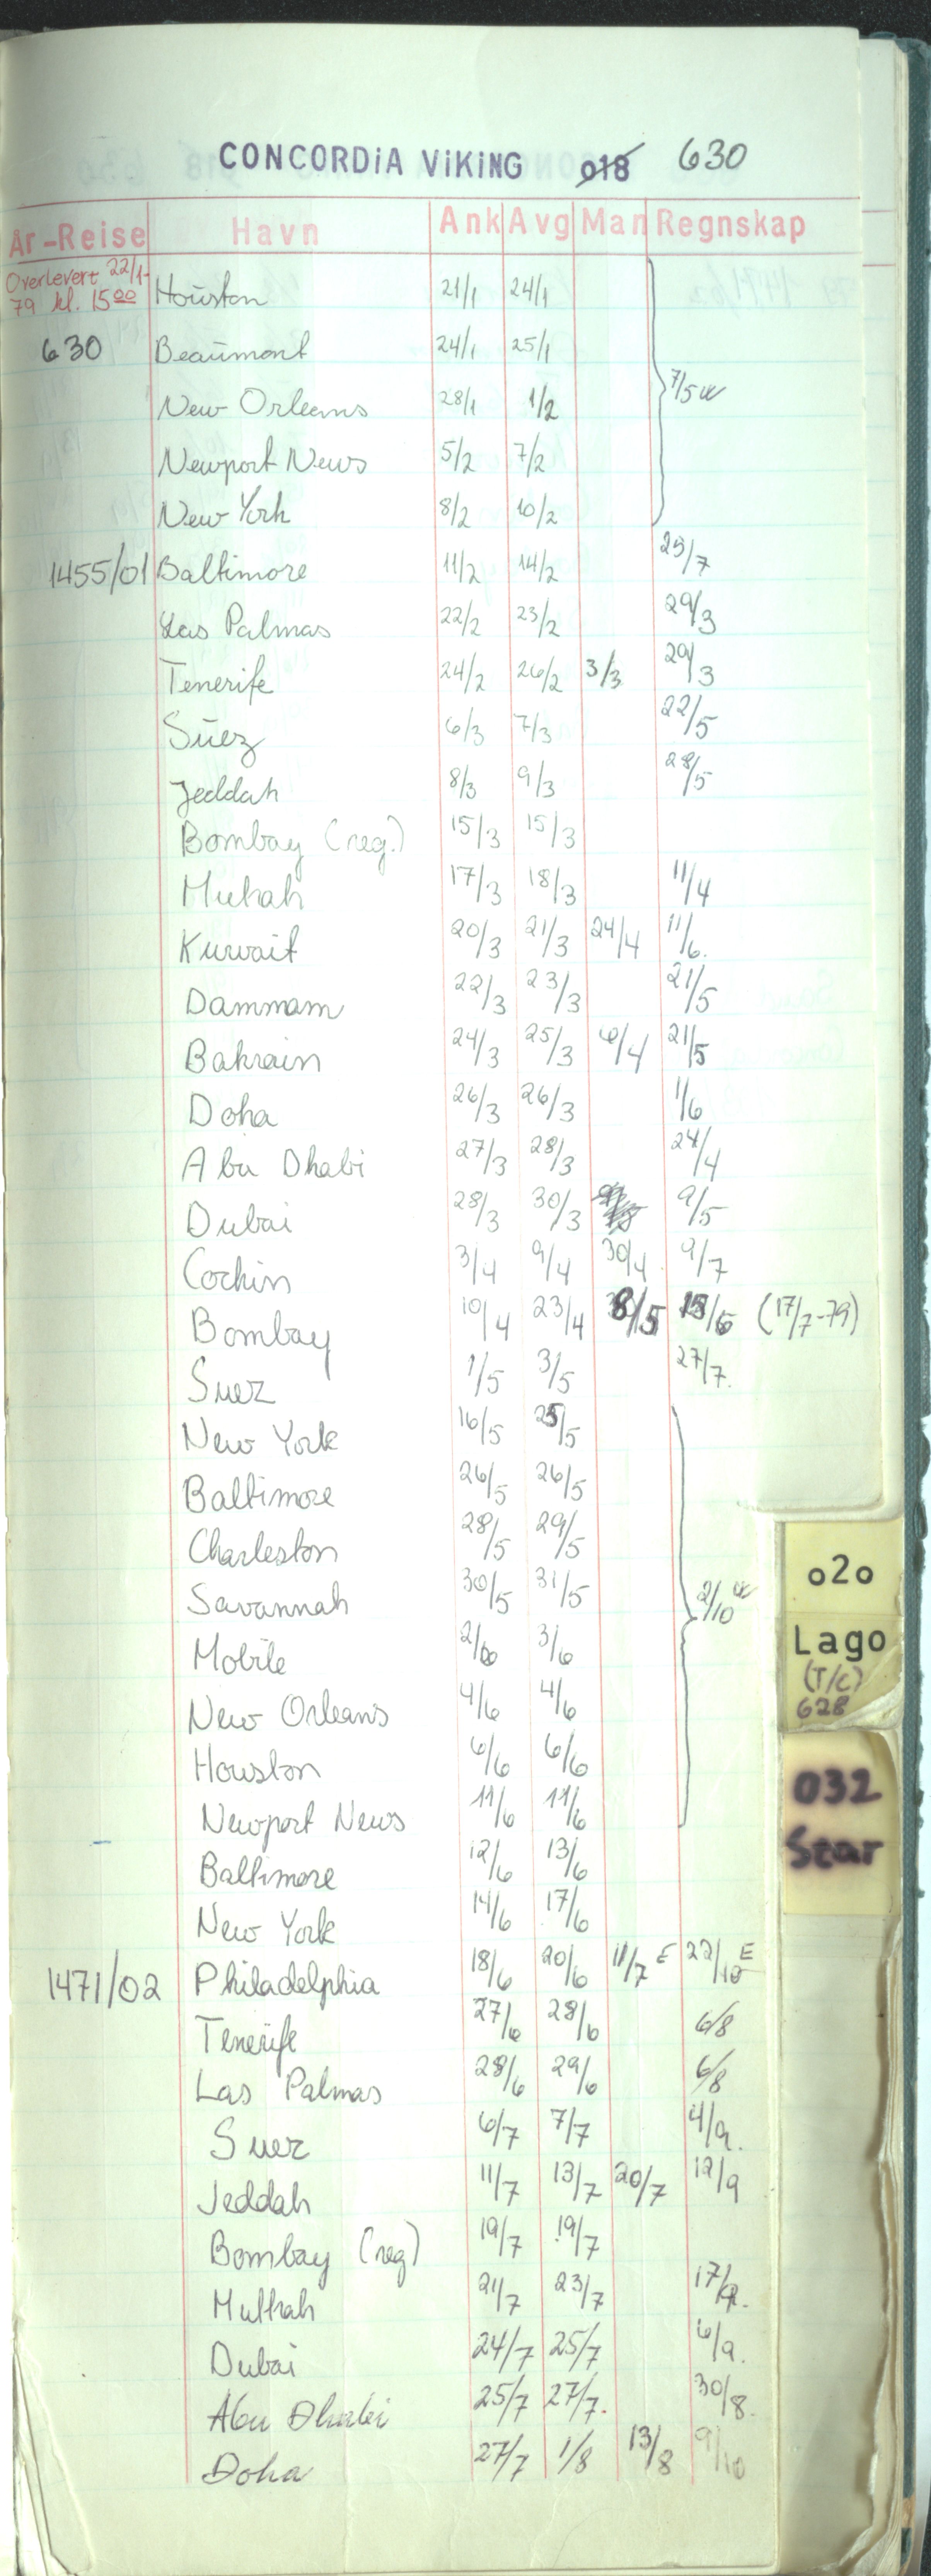 CONCORDiA ViKiNG 018 630
År-Reise Havn Ank Avg Man Regnskap
Overlevert 22/1-
79 kl. 15 00
Houston 21/1 24/1
630 Beaumont 24/1 25/1
New Orleans 28/1 1/2 7/5
Newport News 5/2 7/2
New York 8/2 10/2
1455/01 Baltimore 11/2 14/2 25/7
Las Palmas 22/2 23/2 29/3
Tenerife 24/2 26/2 3/3 29/3
Suez 6/3 7/3 22/5
Jeddah 8/3 9/3 28/5
Bombay (reg.) 15/3 15/3
Mutrah 17/3 18/3 11/4
Kuwait 20/3 21/3 24/4 11/6.
Dammam 22/3 23/3 21/5
Bahrain 24/3 25/3 6/4 21/5
Doha 26/3 26/3 1/6
Abu Dhabi 27/3 28/3 24/4
Dubai 28/3 30/3 9/5
Cochin 3/4 9/4 30/4 9/7
Bombay 10/4 23/4 8/5 15/6 (17/7-79)
Suez 1/5 3/5 27/7.
New York 16/5 25/5
Baltimore 26/5 26/5
Charleston 28/5 29/5
Savannah 30/5 31/5 2/10
Mobile 2/6 3/6
New Orleans 4/6 4/6
Houston 6/6 6/6
Newport News 11/6 11/6
Baltimore 12/6 13/6
New York 14/6 17/6
1471/02 Philadelphia 18/6 20/6 11/7 E 22/10 E
Tenerife 27/6 28/6 6/8
Las Palmas 28/6 29/6 6/8
Suez 6/7 7/7 4/9.
Jeddah 11/7 13/7 20/7 12/9
Bombay (reg) 19/7 19/7
Muttrah 21/7 23/7 17/9.
Dubai 24/7 25/7 6/9.
Abu Dhabi 25/7 27/7. 30/8.
Doha 27/7 1/8 13/8 9/10
020
Lago
(T/C)
628
032
Star